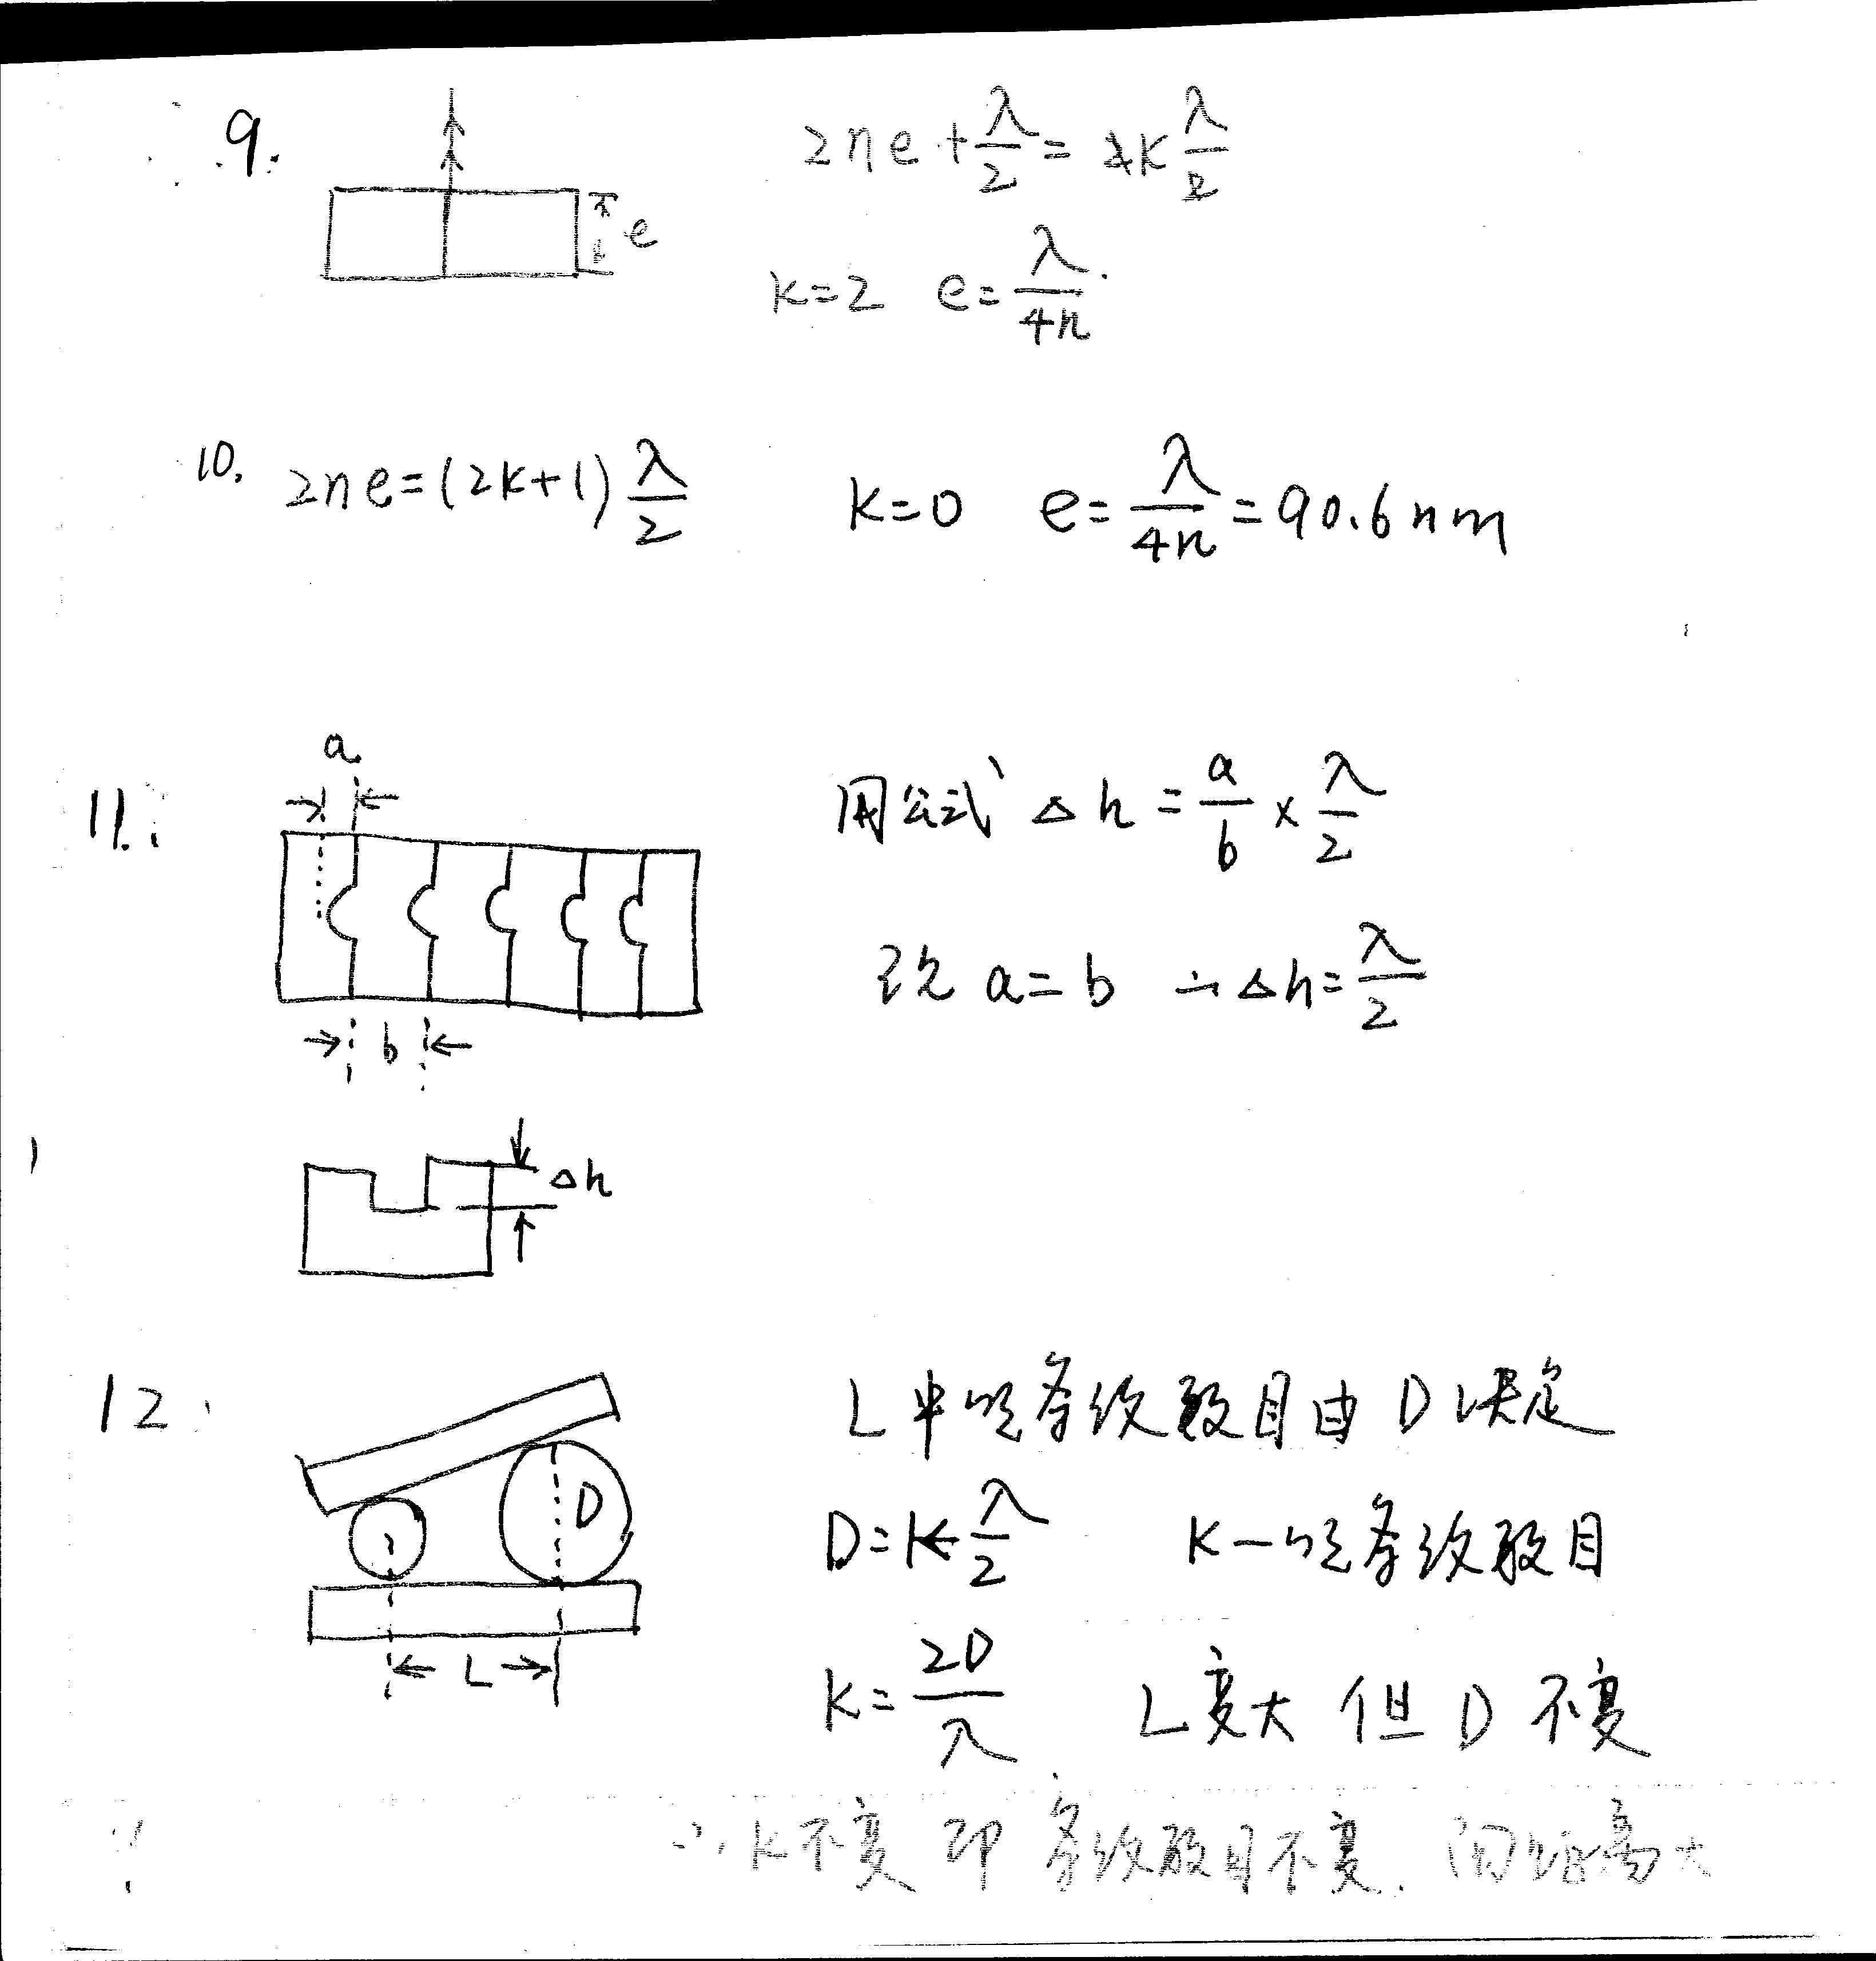 9.
e
2ne + λ/2 = 2k λ/2
k=2 e= λ/4n.
10. 2ne=(2k+1) λ/2 k=0 e= λ/4n =90.6nm
11.
a
b
用公式 Δh = a/b × λ/2
a=b ∴Δh= λ/2
Δh
12.
D
L
L 中 条纹数目由 D 决定
D=k λ/2 k— 条纹数目
k= 2D/λ L变大 但 D 不变
∴ k不变 即 条纹数目不变. 间距变大